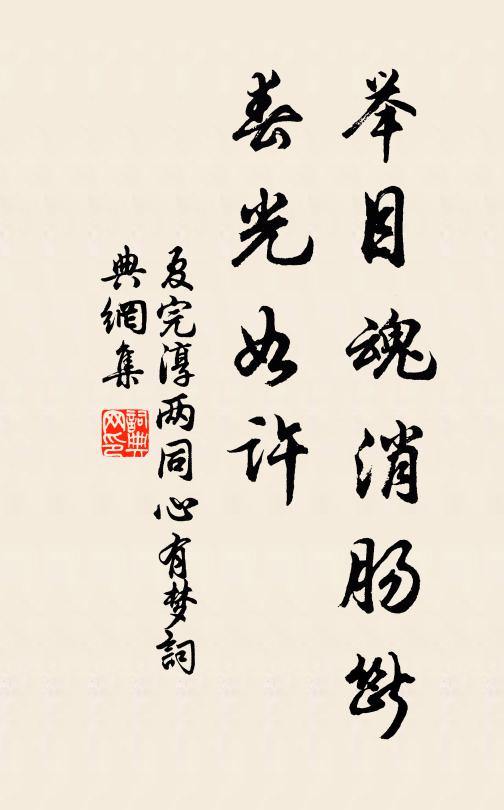 举目魂消肠断
春光如许
夏完淳两同心有梦詞
典網集
詞典网印